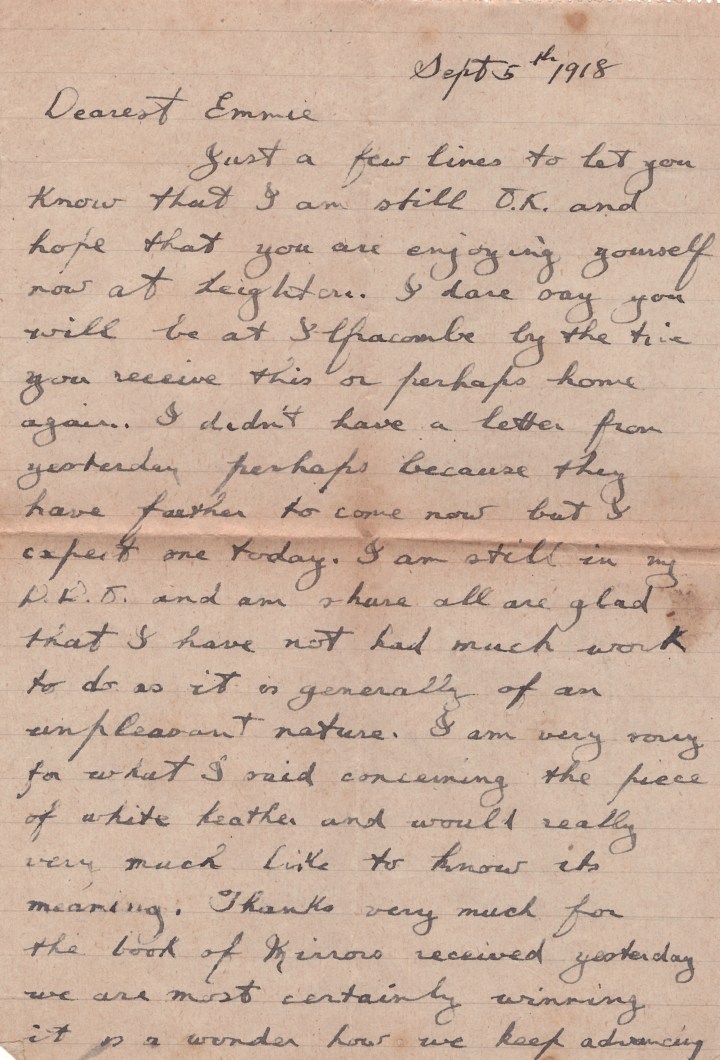 Sept 5th 1918
Dearest Emmie
Just a few lines to let you
know that I am still O.K. and
hope that you are enjoying yourself
now at Leighton. I dare say you
will be at Ilfracombe by the time
you receive this or perhaps home
again. I didn't have a letter from
yesterday perhaps because they
have farther to come now but I
expect one today. I am still in my
and am shure all are glad
that I have not had much work
to do as it is generally of an
unpleasant nature. I am very sorry
for what I said concerning the piece
of white heather and would really
very much like to know its
meaning. Thanks very much for
the book of Mirrors received yesterday
we are most certainly winning
it is a wonder how we keep advancing